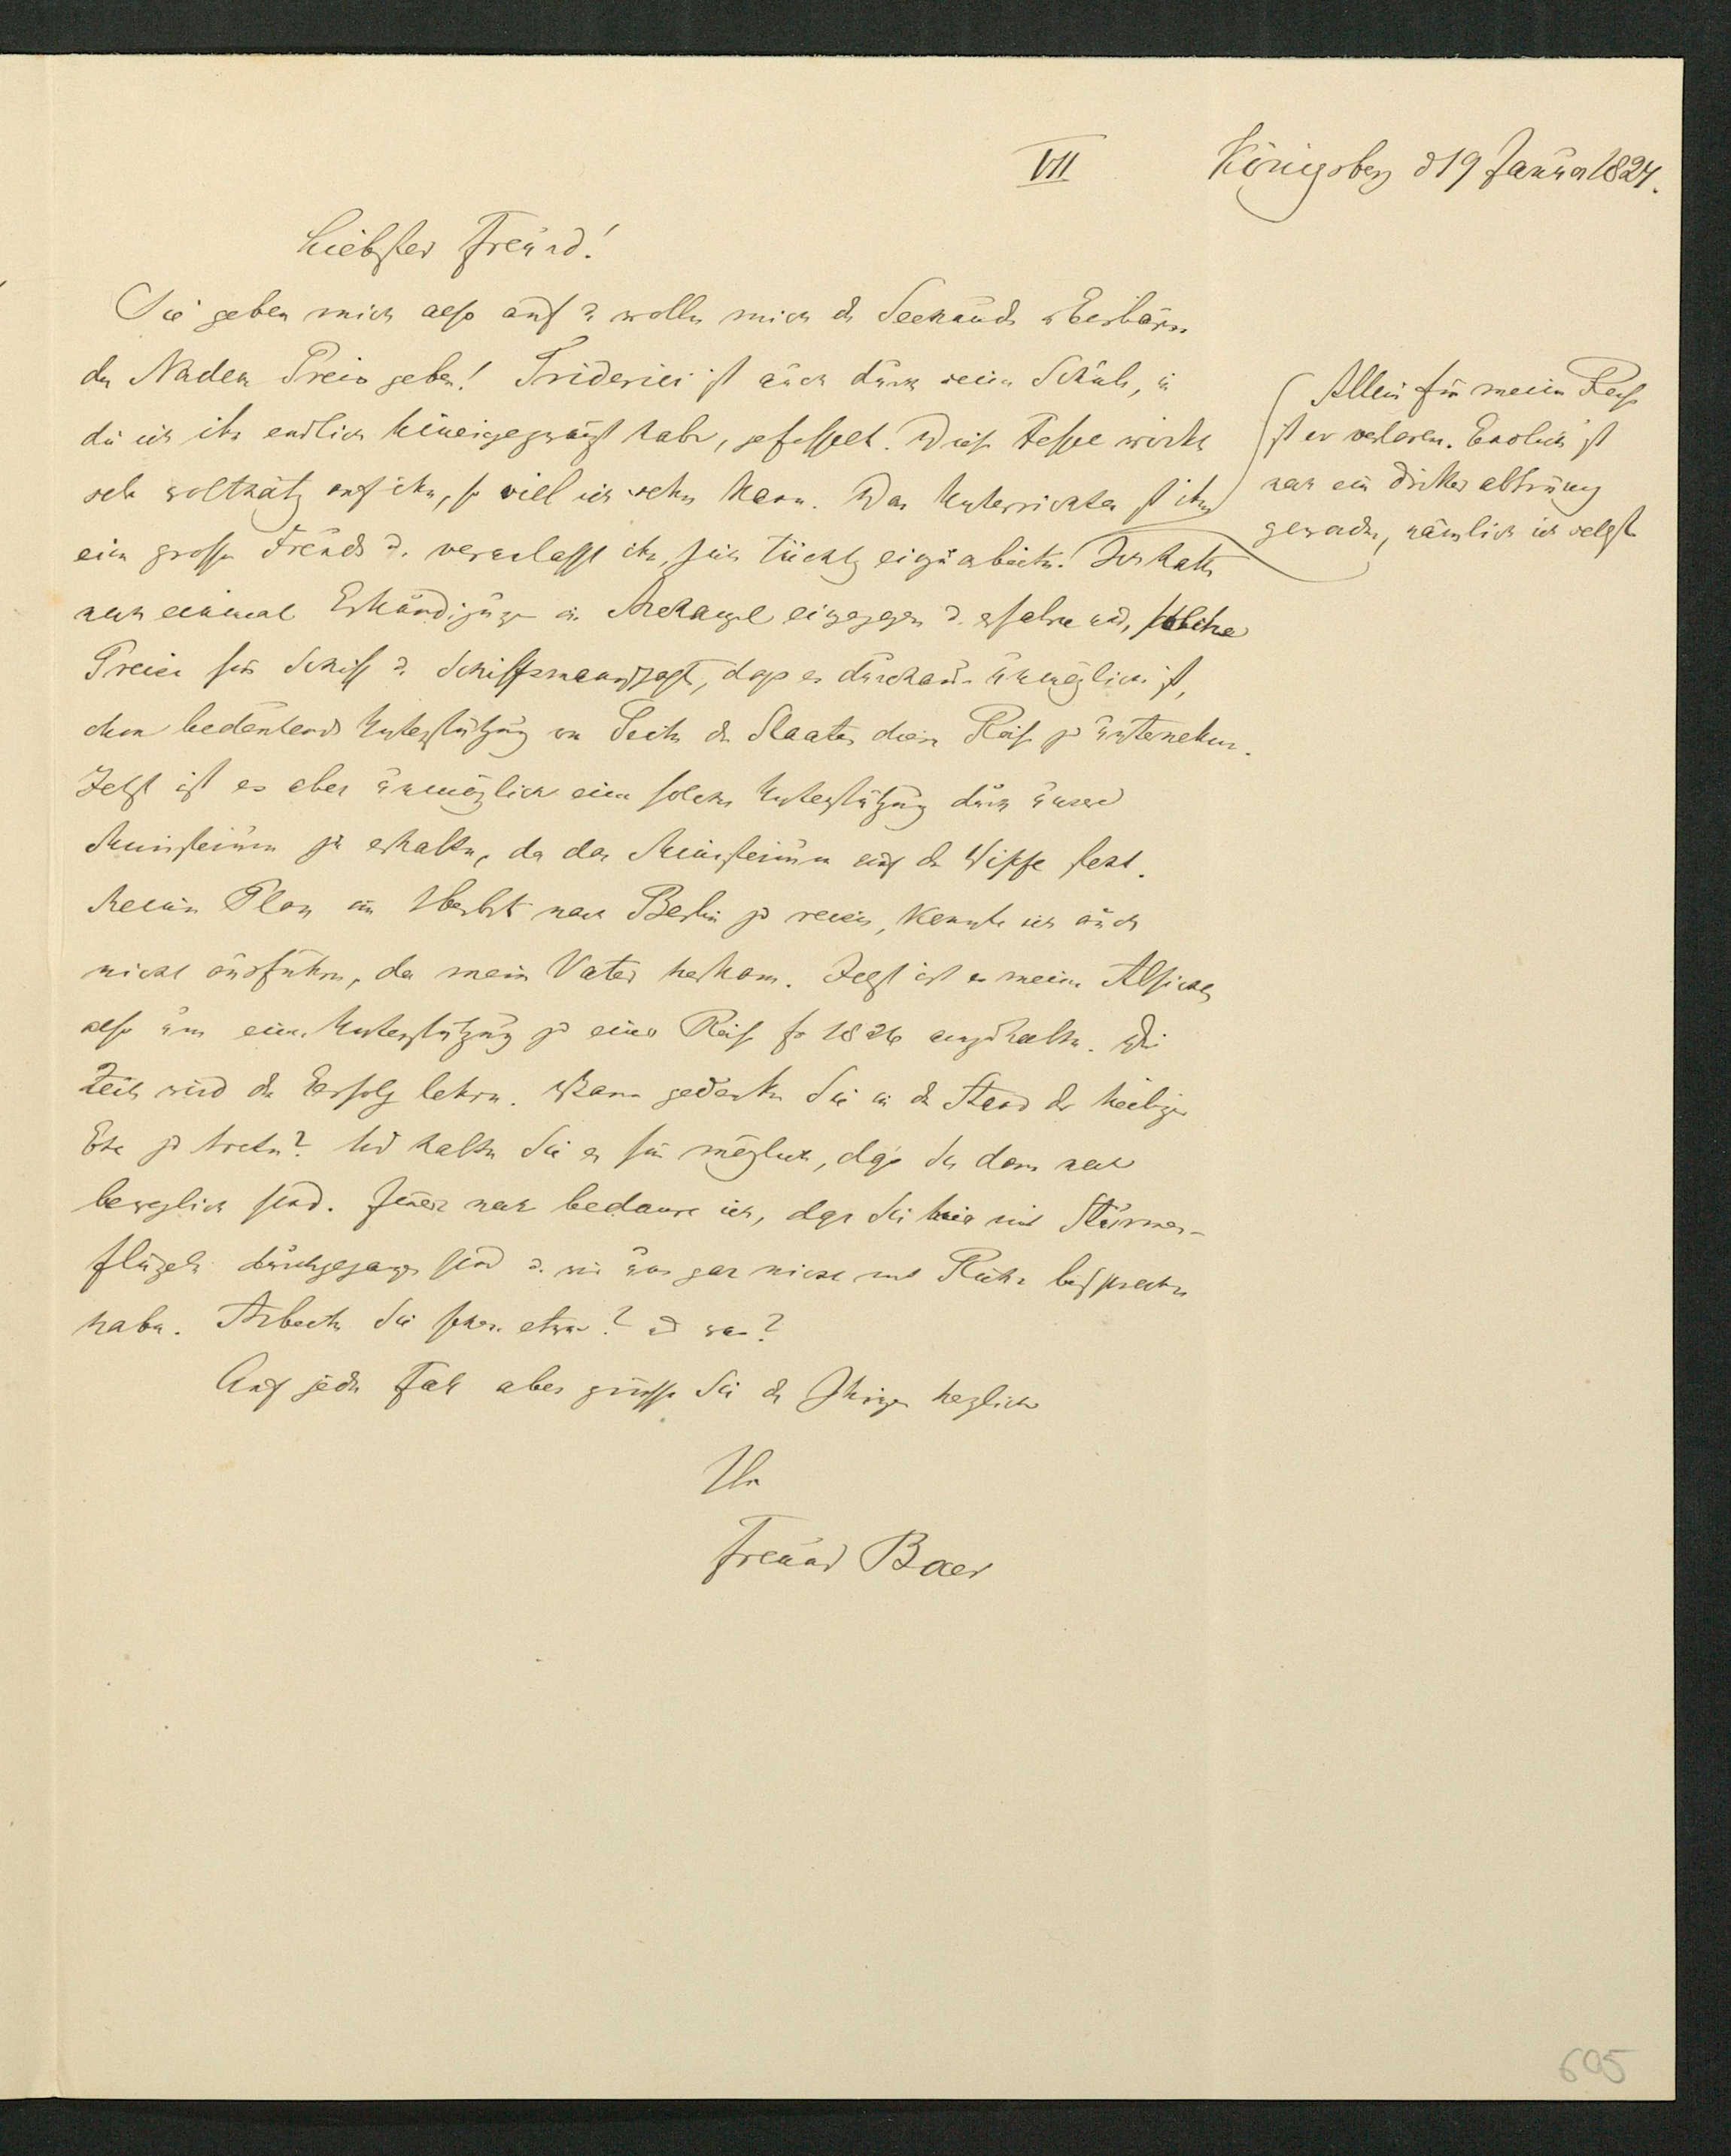 VII Königsberg d 19 Januar 1824.
Liebster Freund!
Sie geben mich also auf u. wollen mich d Seehunden u Eisbären
den Nadeln Preis geben! Friderici ist auch durch seine Schule, in
die ich ihn endlich hineingezwängt habe, gefesselt. Diese Fessel wirkt
sehr wolthätig auf ihn, so viel ich sehen kann. Das Unterrichten ist ihm
eine grosse Freude u. veranlasst ihn, sich tüchtig einzuarbeiten.
Allein für meine Reise
ist er verloren. Endlich ist
noch ein dritter abtrünnig
geworden, nämlich ich selbst
Ich hatte
noch einmal Erkundigungen in Archangel eingezogen u. erfahren, solche
Preise für Schiff u. Schiffsmannschaft, dass es durchaus unmöglich ist,
ohne bedeutende Unterstützung von Seiten des Staates diese Reise zu unternehmen.
Jetzt ist es aber unmöglich eine solche Unterstützung durch unser
Ministerium zu erhalten, da das Ministerium auf der Wippe steht.
Meinen Plan im Herbst nach Berlin zu reisen, konnte ich auch
nicht ausführen, da mein Vater herkam. Jetzt ist es meine Absicht
also um eine Unterstützung zu einer Reise für 1826 anzuhalten. Die
Zeit wird den Erfolg lehren. Wann gedenken Sie in den Stand der heiligen
Ehe zu treten? Und halten Sie es für möglich, dass Sie dann noch
beweglich sind. Immer noch bedaure ich, dass Sie hier mit Sturmes-
flügeln durchgegangen sind u. wir uns gar nicht mit Ruhe besprochen
haben. Arbeiten Sie schon etwas? u was?
Auf jeden Fall aber grüssen Sie die Ihrigen herzlich
Ihr
Freund Baer
605